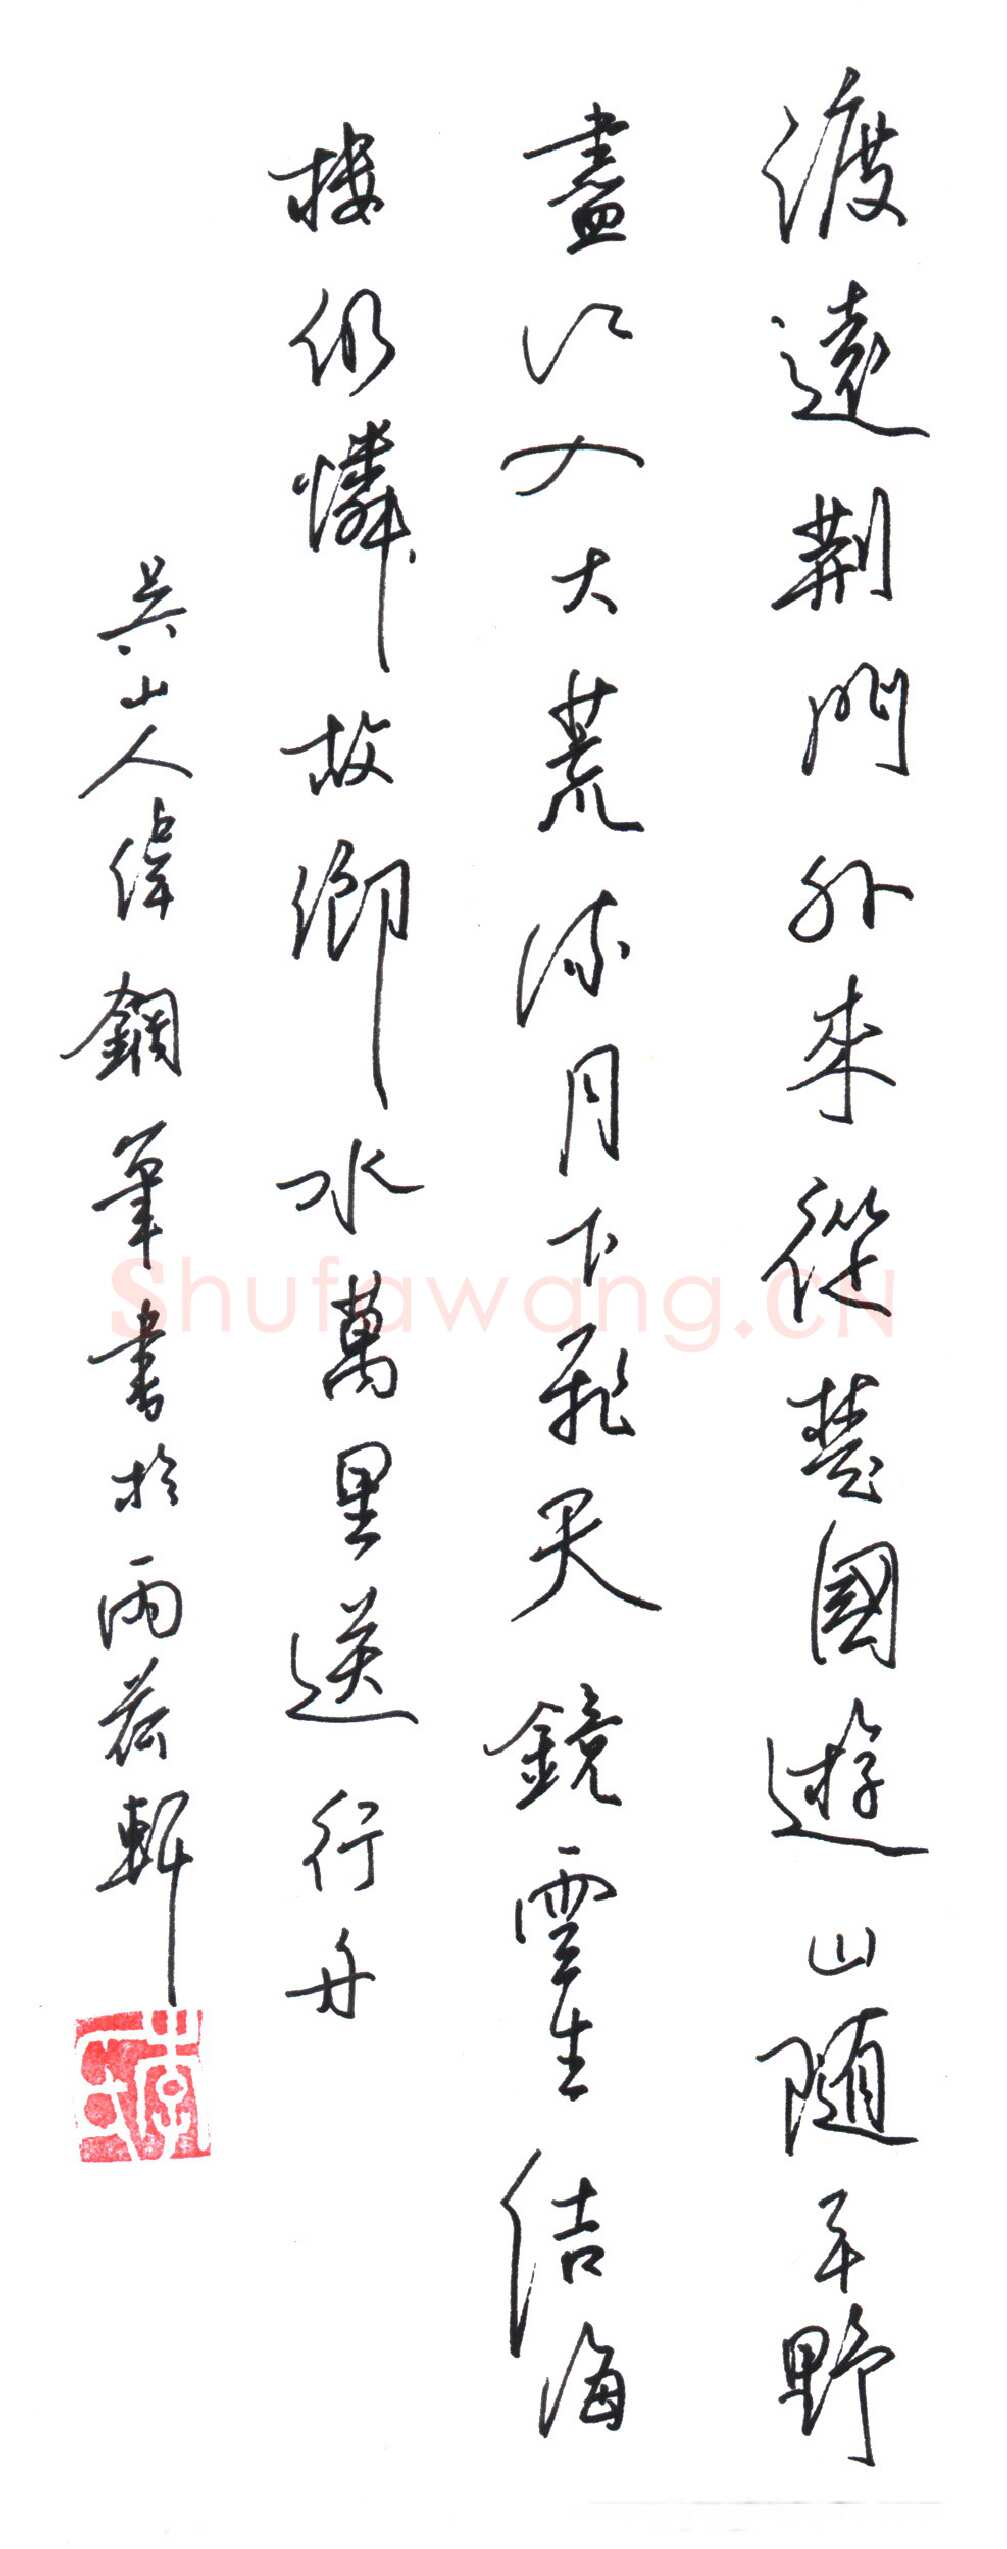 渡遠荆門外來從楚國遊山隨平野
盡江入大荒流月下飛天鏡雲生結海
樓仍憐故鄉水萬里送行舟
吳山人偉鋼筆書於雨荷軒
Shufawang.CN